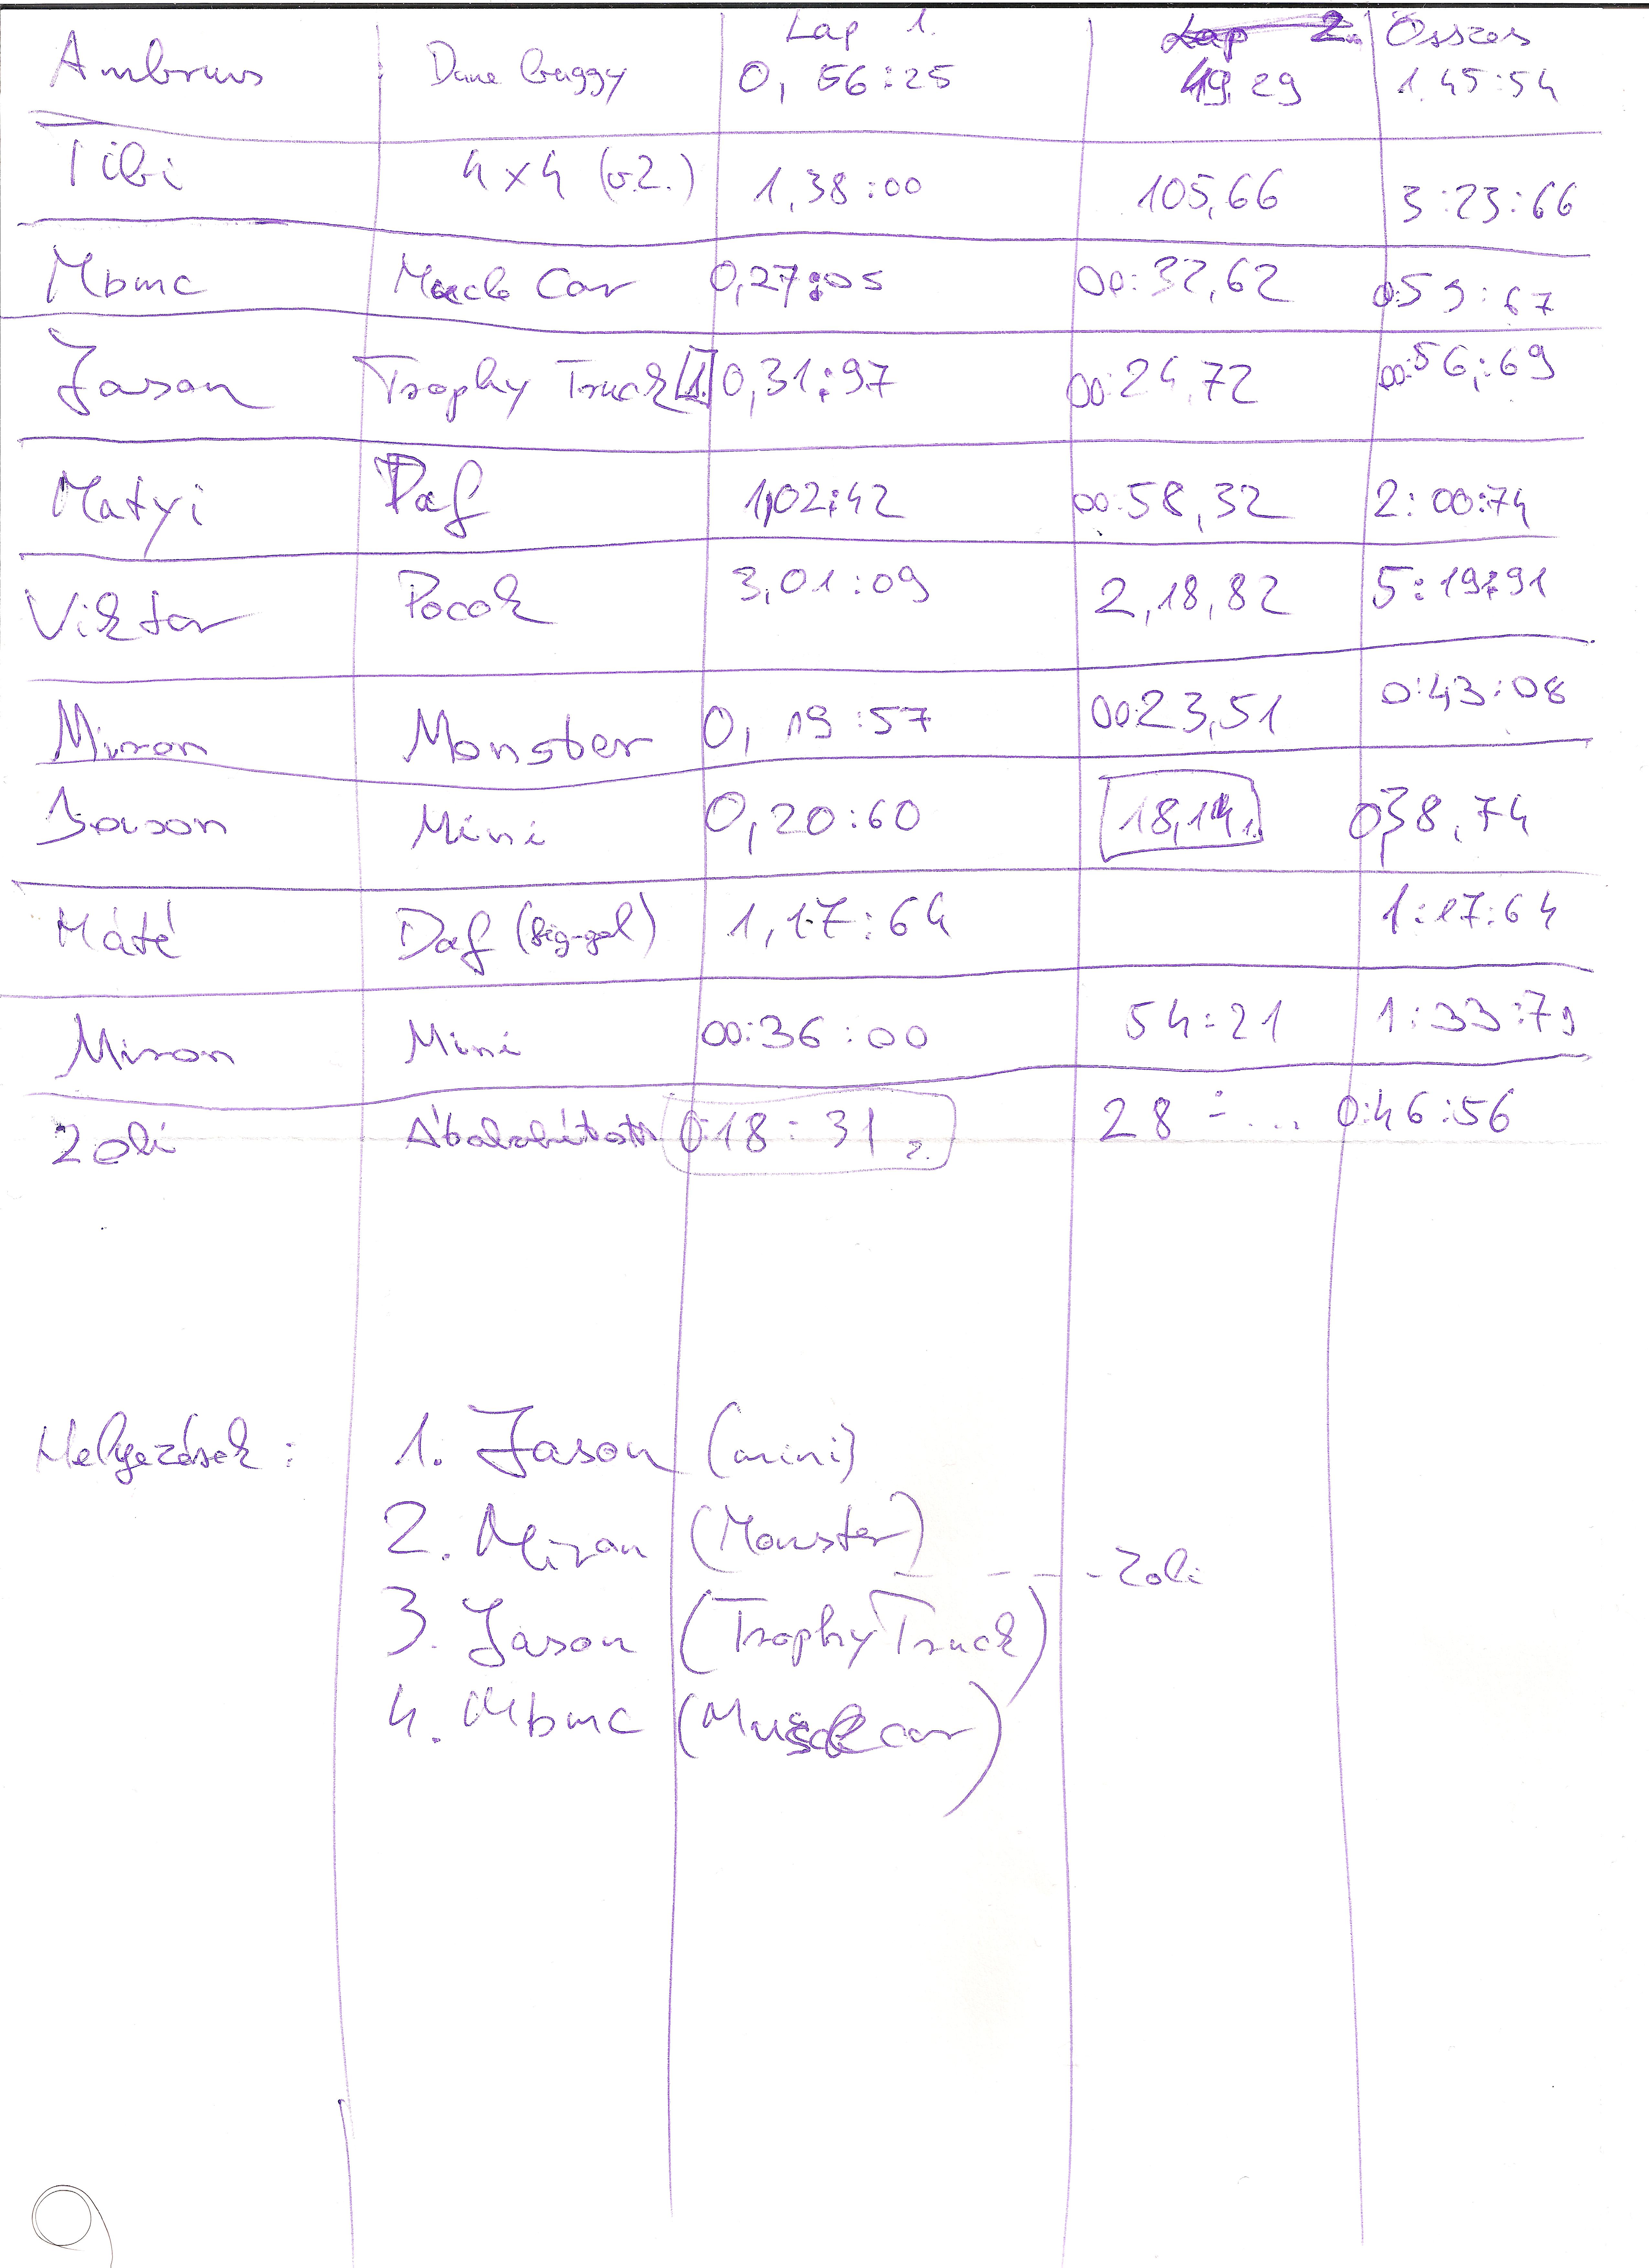 Lap 1. Lap 2. Összes
Ambrus Dune buggy 0, 56:25 49.29 1.45:54
Tibi 4x4 (v.2.) 1,38:00 105,66 3:23:66
Mbmc Car 0,27:05 00:32,62 0:59:67
Jason Trophy Truck 1. 0,31:97 00:24,72 00:56,:69
Matyi Daf 1,02:42 00:58,32 2:00:74
Viktor Pocok 3,01:09 2,18,82 5:19:91
Miron Monster 0, 19:57 00:23,51 0:43:08
Jason Mini 0,20:60 18,14 1. 038,74
Máté Daf 1,17:64 1:17:64
Miron Mini 00:36:00 54:21 1:33:79
Zoli 0:18:31 2. 28 :... 0:46:56
Helyezések: 1. Jason (mini)
2. Miron (Monster)
- - - - Zoli
3. Jason (Trophy Truck)
4. Mbmc (Muscle car)